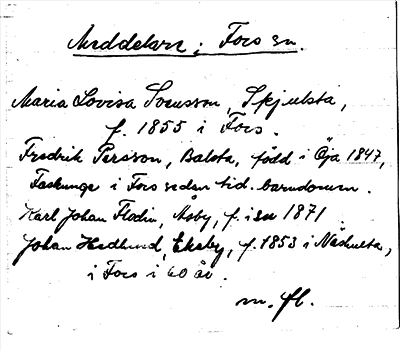 Meddelare: Fors sn.
Maria Lovisa Svensson, Skjulsta,
f. 1855 i Fors.
Fredrik Persson, Balsta, född i Öja 1847,
i Fors sedan tid. barndomen.
Karl Johan Flodin, Åsby, f. i sn 1871
Johan Hedlund, Ekeby, f. 1853 i Näshulta,
i Fors i 60 år.
m. fl.